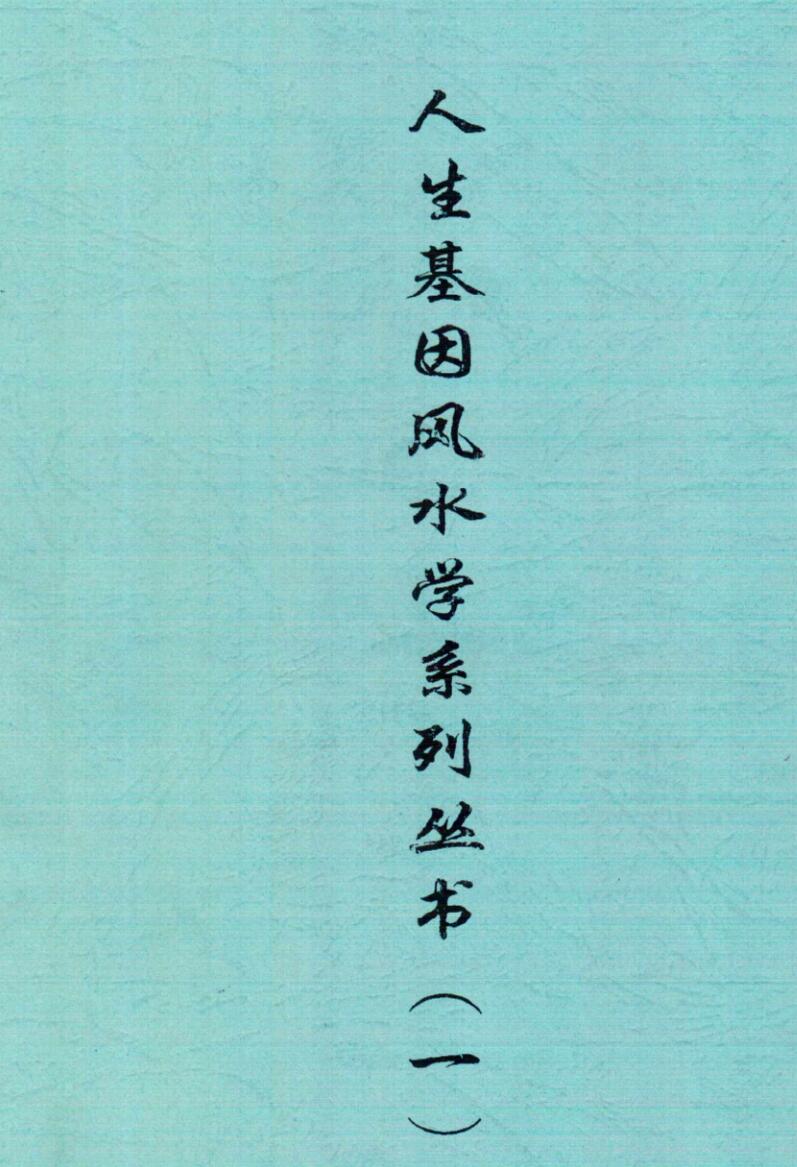 人生基因风水学系列丛书（一）